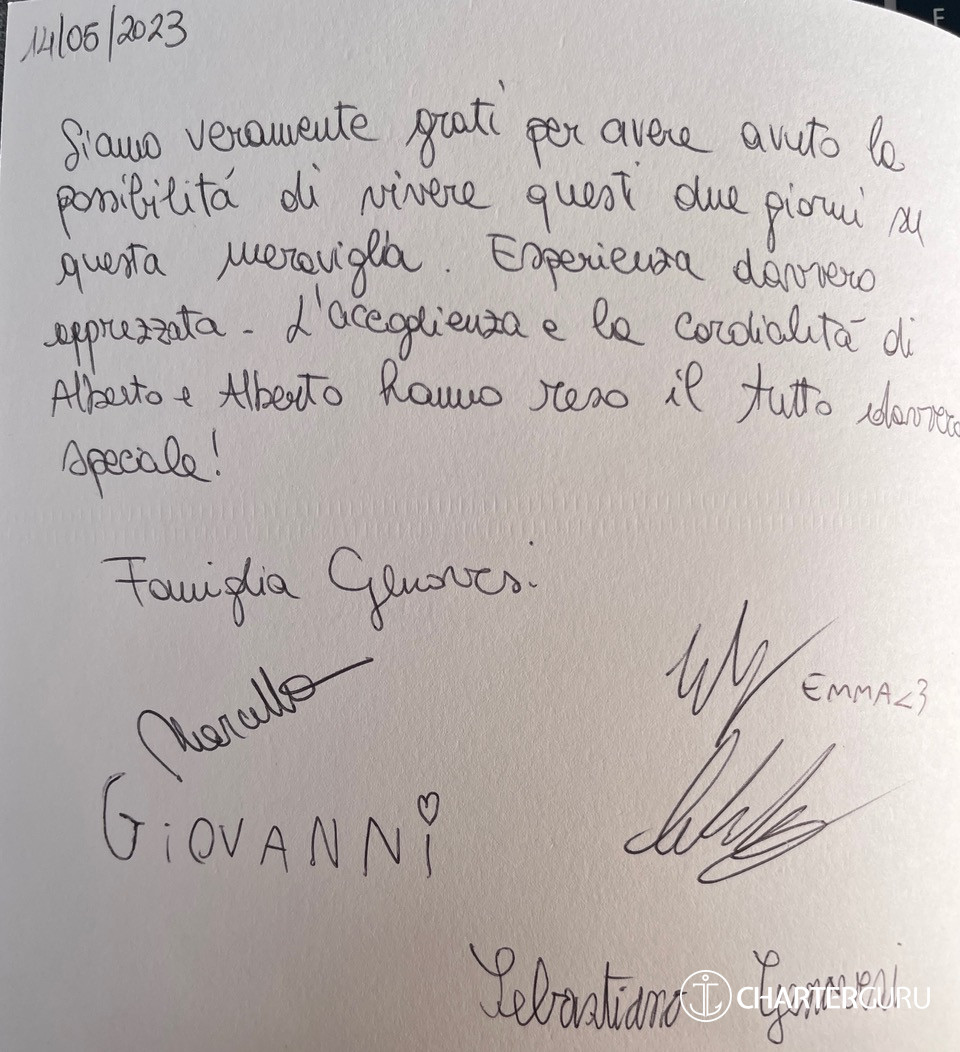 14/05/2023
Siamo veramente grati per avere avuto la
possibilitá di vivere questi due giorni su
questa meraviglia. Esperienza davvero
apprezzata - L'accoglienza e la cordialitá di
Alberto e Alberto hanno reso il tutto davvero
speciale!
Famiglia Genovesi
Marcello
EMMA<3
GiOVANNi
Sebastiano Genovesi
CHARTERGURU
F